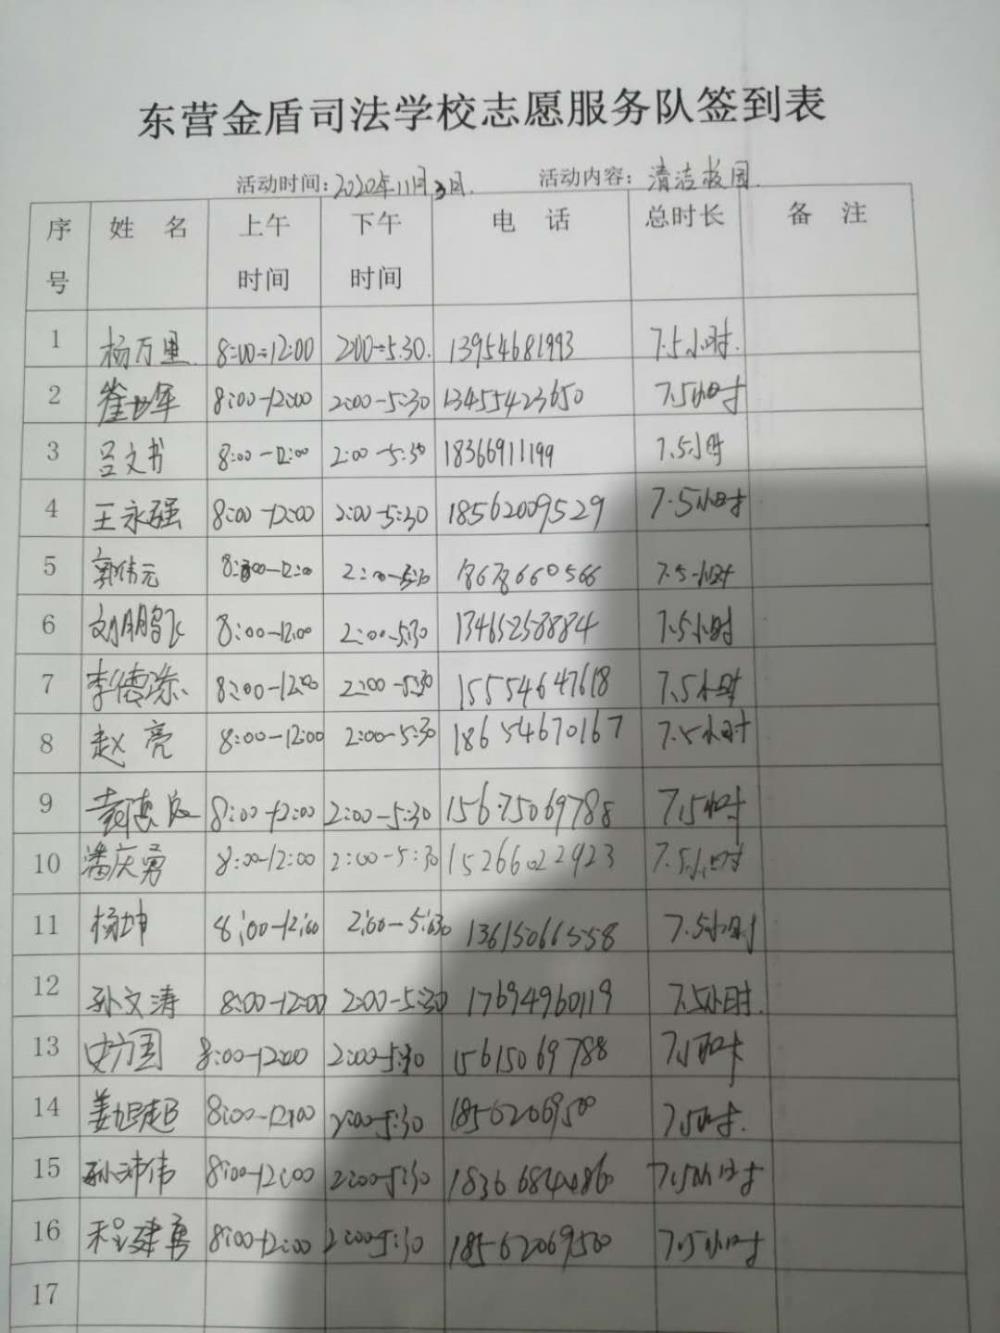 东营金盾司法学校志愿服务队签到表
活动时间:2020年11月3日. 活动内容:清洁校园.
序号 姓 名 上午时间 下午时间 电 话 总时长 备 注
1 杨万里 8:00-12:00 2:00-5:30. 13954681993 7.5小时.
2 崔世军 8:00-12:00 2:00-5:30 13455423650 7.5小时
3 吕文书 8:00-12:00 2:00-5:30 18366911199 7.5小时
4 王永强 8:00-12:00 2:00-5:30 18562009529 7.5小时
5 郭伟元 8:00-12:00 2:00-5:30 18678660566 7.5小时
6 刘鹏飞 8:00-12:00 2:00-5:30 13465258884 7.5小时
7 李德 8:00-12:00 2:00-5:30 15554647618 7.5小时
8 赵亮 8:00-12:00 2:00-5:30 18654670167 7.5小时
9 8:00-12:00 2:00-5:30 15675069788 7.5小时
10 潘庆勇 8:00-12:00 2:00-5:30 15266022923 7.5小时
11 杨坤 8:00-12:00 2:00-5:30 13615066558 7.5小时
12 孙文涛 8:00-12:00 2:00-5:30 17694960119 7.5小时.
13 史方国 8:00-12:00 2:00-5:30 15615069788 7.5小时
14 姜旭超 8:00-12:00 2:00-5:30 1856206950 7.5小时.
15 孙沛伟 8:00-12:00 2:00-5:30 7.5小时
16 程建勇 8:00-12:00 2:00-5:30 18562069500 7.5小时
17